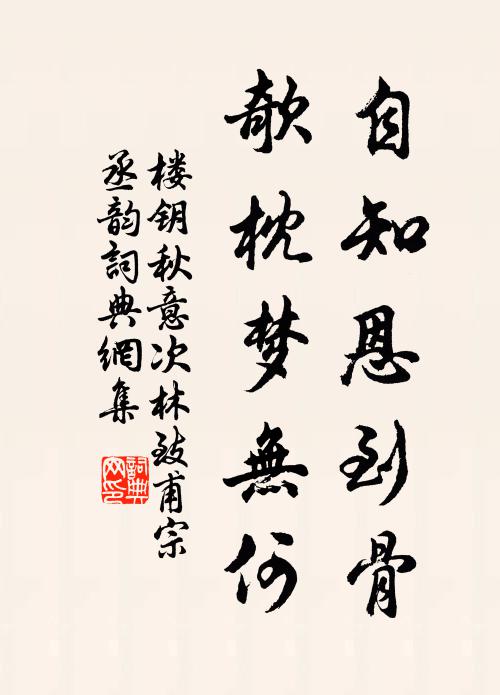 自知恩到骨
欹枕梦無何
楼钥秋意次林致甫宗
丞韵詞典網集
詞典
网印